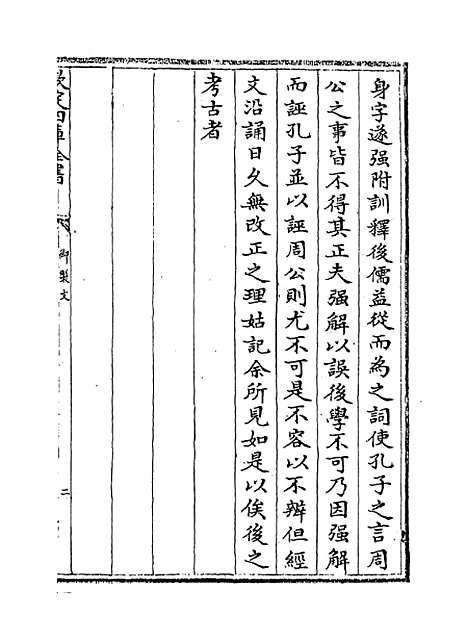 身字遂强附訓釋後儒益從而為之詞使孔子之言周
公之事皆不得其正夫强解以誤後學不可乃因强解
而誣孔子並以誣周公則尤不可是不容以不辨但經
文沿誦日久無改正之理姑記余所見如是以俟後之
考古者
欽定四庫全書
御製文
二